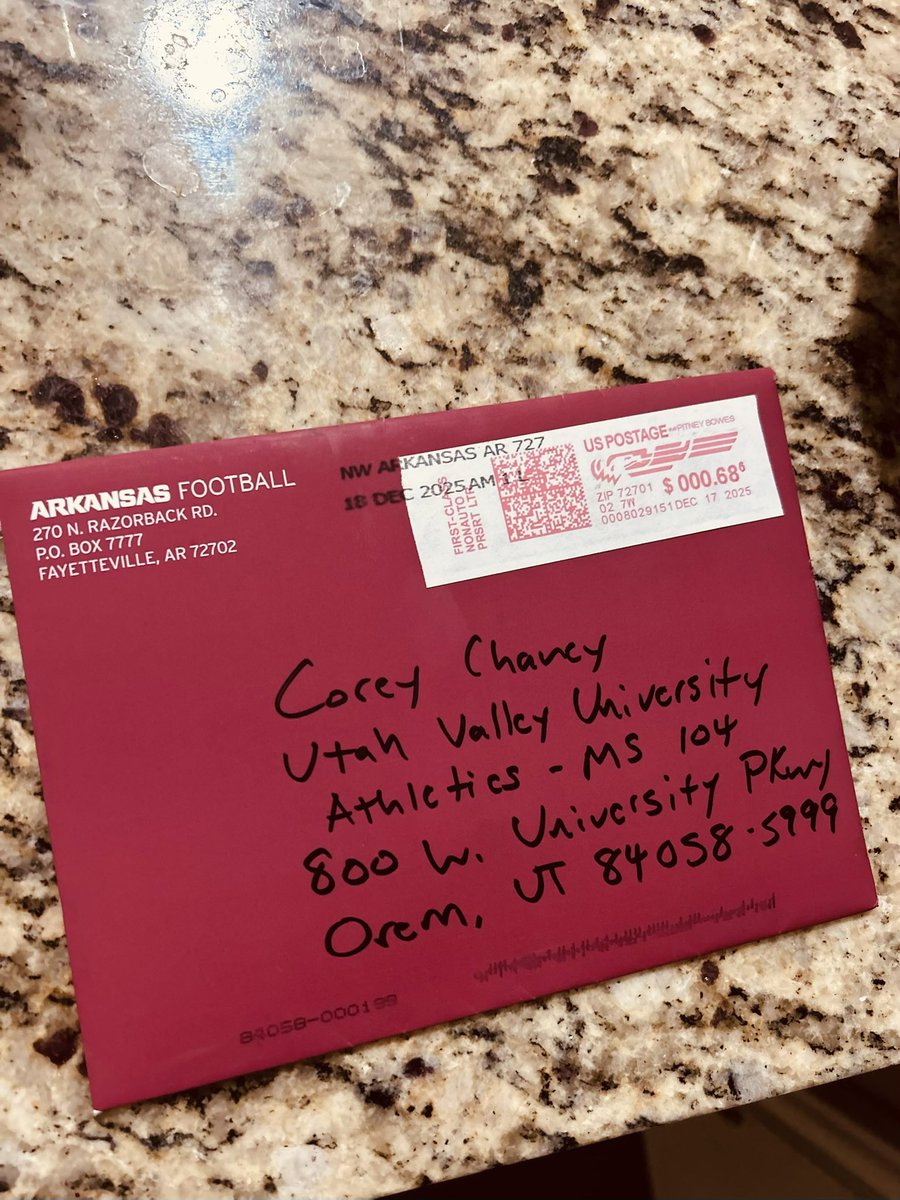 ARKANSAS FOOTBALL
270 N. RAZORBACK RD.
P.O. BOX 7777
FAYETTEVILLE, AR 72702
NW ARKANSAS AR 727
18 DEC 2025 AM 1 L
FIRST-CLASS
NONAUTO
PRSRT LTR
US POSTAGE PITNEY BOWES
ZIP 72701 $ 000.68⁶
02 7W
0008029151 DEC 17 2025
Corey Chaney
Utah Valley University
Athletics - MS 104
800 W. University Pkwy
Orem, UT 84058-5999
84058-000199